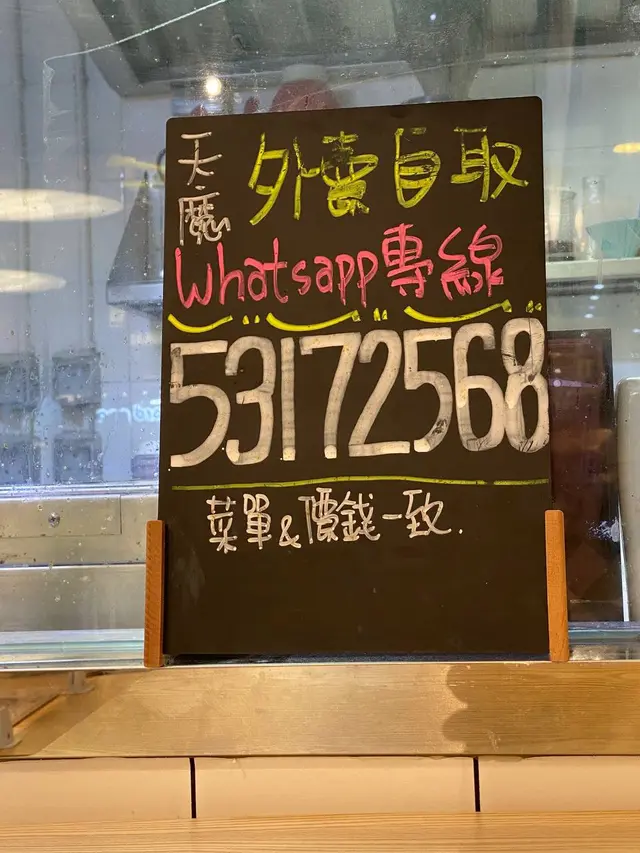 天麽
外賣自取
Whatsapp專線
53172568
菜單&價錢一致.